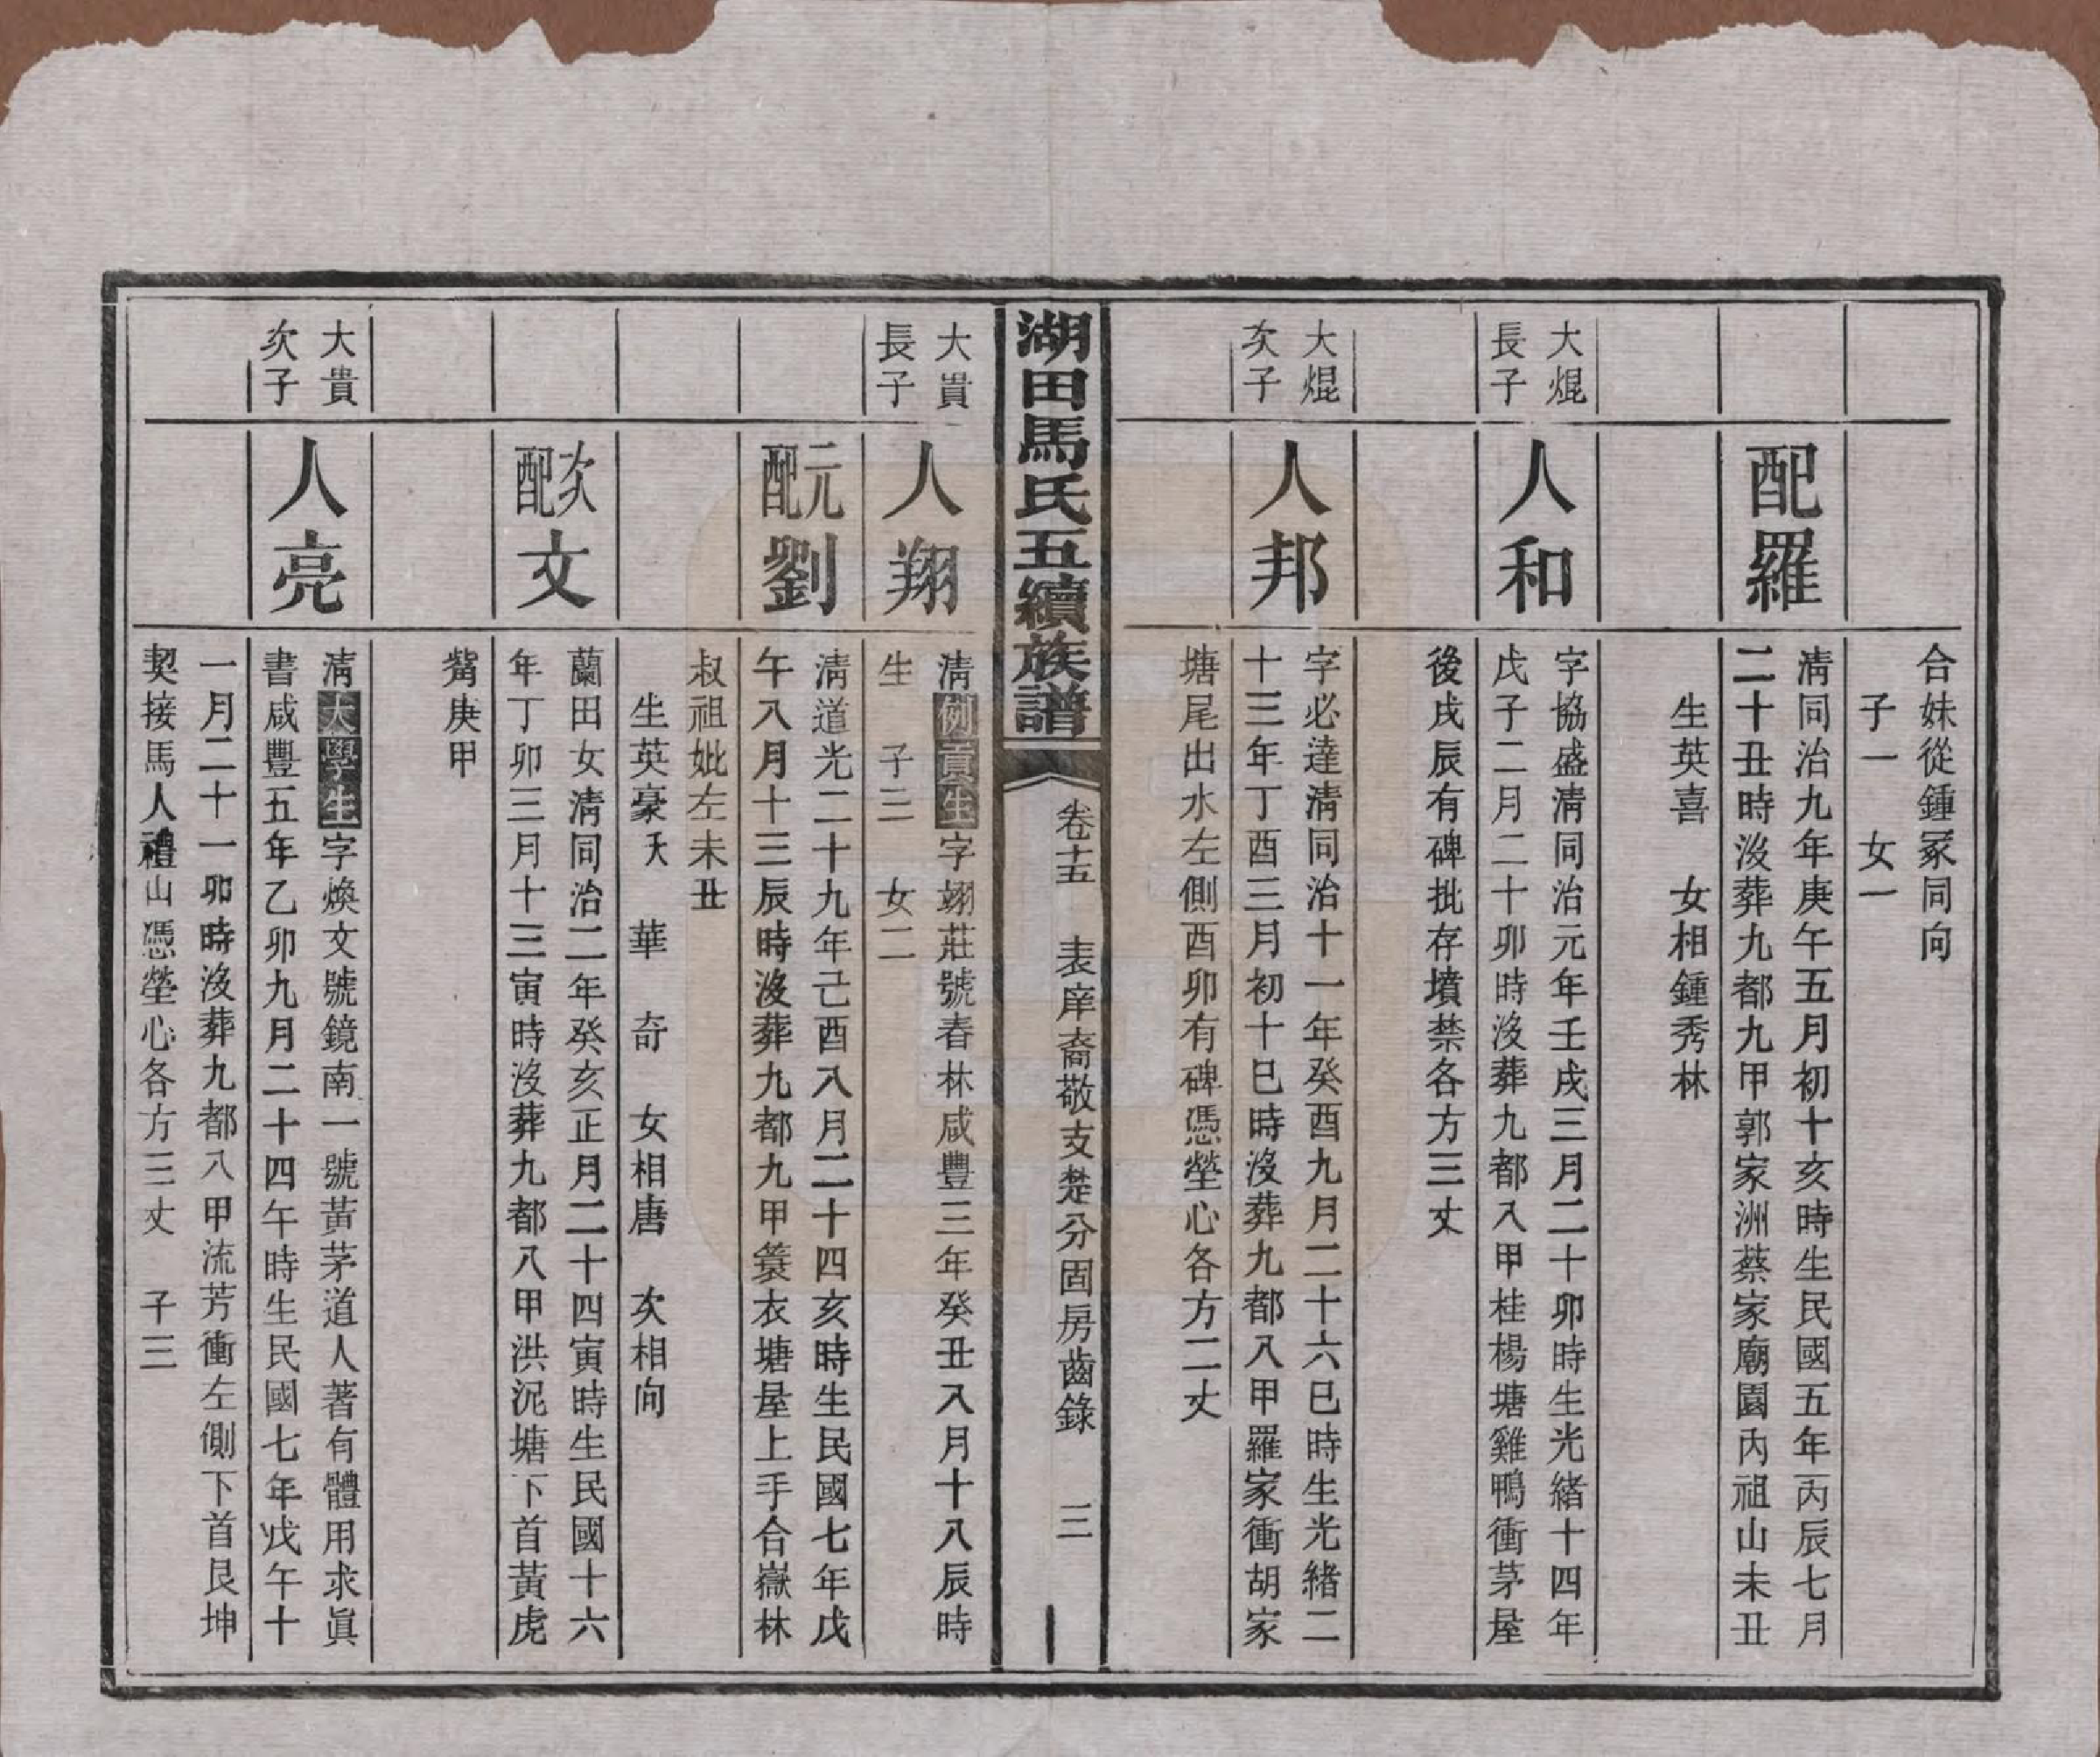 合妹從鍾冢同向
子一　女一
配羅
淸同治九年庚午五月初十亥時生民國五年丙辰七月
二十丑時沒葬九都九甲郭家洲蔡家廟園內祖山未丑
生英喜　女相鍾秀林
大焜
長子
人和
字協盛淸同治元年壬戌三月二十卯時生光緖十四年
戊子二月二十卯時沒葬九都八甲桂楊塘雞鴨衝茅屋
後戌辰有碑批存墳禁各方三丈
大焜
次子
人邦
字必達淸同治十一年癸酉九月二十六巳時生光緖二
十三年丁酉三月初十巳時沒葬九都八甲羅家衝胡家
塘尾出水左側酉卯有碑憑塋心各方二丈
湖田馬氏五續族譜
卷十五　表庠裔敬支楚分固房齒錄　三
大貴
長子
人翔
淸例貢生字翊莊號春林咸豐三年癸丑八月十八辰時
生　子三　女二
元配劉
淸道光二十九年己酉八月二十四亥時生民國七年戊
午八月十三辰時沒葬九都九甲簑衣塘屋上手合嶽林
叔祖妣左未丑
生英豪　華　奇　女相唐　次相向
次配文
蘭田女淸同治二年癸亥正月二十四寅時生民國十六
年丁卯三月十三寅時沒葬九都八甲洪泥塘下首黃虎
觜庚甲
大貴
次子
人亮
淸太學生字煥文號鏡南一號黃茅道人著有體用求眞
書咸豐五年乙卯九月二十四午時生民國七年戊午十
一月二十一卯時沒葬九都八甲流芳衝左側下首艮坤
契接馬人禮山憑塋心各方三丈　子三